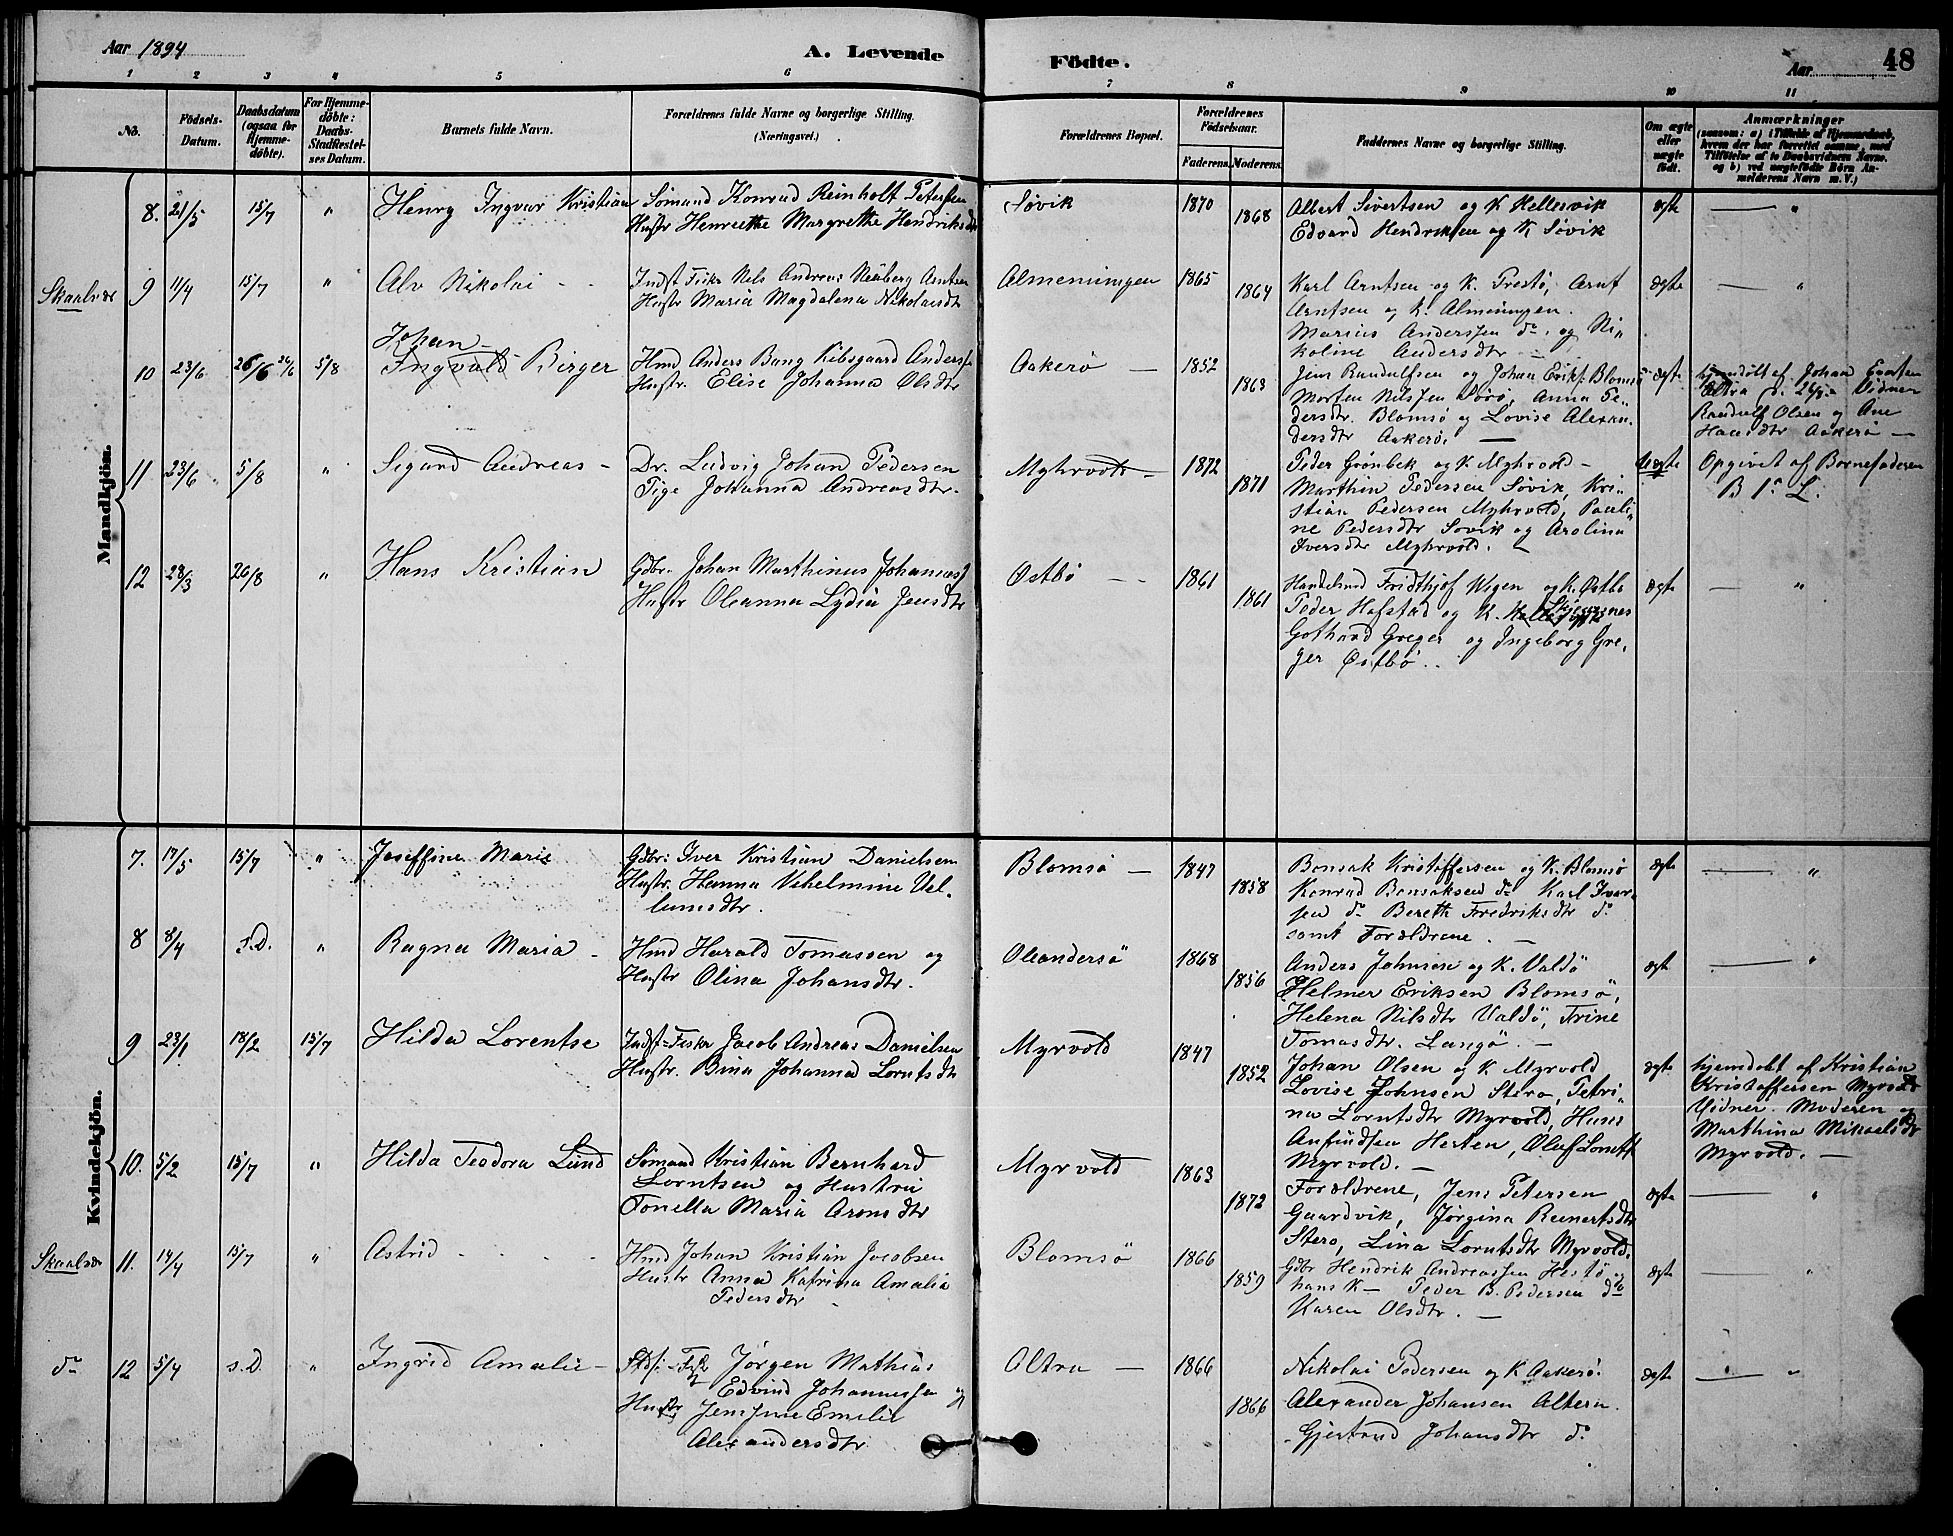 Aar 1894
A. Levende
Födte.
Aar
48
1 2 3 4 5 6 7 8 9 10 11
No.
Födsels-
Datum.
Daabsdatum
(ogsaa for
Hjemme-
döbte).
For Hjemme-
döbte:
Daabs-
Stadfæstel-
ses Datum.
Barnets fulde Navn.
Forældrenes fulde Navne og borgerlige Stilling.
(Næringsvei.)
Forældrenes Bopæl.
Forældrenes
Födselsaar.
Faderens. Moderens.
Faddernes Navne og borgerlige Stilling.
Om ægte
eller
uægte
födt.
Anmærkninger
(saasom: a) i Tilfælde af Hjemmedaab,
hvem der har forrettet samme, med
Tilföielse af to Daabsvidners Navne,
og b) ved uægtefödte Börn An-
melderens Navn m. V.)
Mandkjön.
8. 21/5 15/7 " Henry Ingvar Kristian
Sömand Konrad Reinholt Petersen
Hustr Henriette Margrethe Hendriksdtr
Søvik
1870 1868
Albert Sivertsen og K Hellesvik
Edvard Hendriksen og K Søvik
ægte
— "
Skaalvær 9 11/4 15/7 " Alv Nikolai - -
Indst Fisker Nils Andreas Neuberg Arntsen
Hustr Maria Magdalena Nikolaisdtr
Almenningen
1865 1864
Karl Arntsen og K. Prestø, Arnt
Arntsen og K. Almeningen.
Marius Andersen do. og Ni-
koline Andersdtr —
ægte
— "
10 23/6 26/6 26/6 5/8 Johan
Ingvald Birger
Hmd Anders Bang Kibsgaard Anders
Hustr. Elise Johanna Olsdtr
Aakerø —
1852 1863
Jens Randulfsen og Johan Eriks: Blomsø
Morten Nilssen Sørø, Anna Pe-
dersdtr. Blomsø og Lovise Alexan-
dersdtr Aakerø. —
ægte
hjemdöbt af Johan
Altra d. 26/6 Vidner
Randulf Olsen og Ane
Hansdtr Aakerø —
11 23/6 5/8 " Sigurd Andreas -
Dr. Ludvig Johan Pedersen
Pige Johanna Andreasdtr.
Myhrvold -
1872 1871
Peder Grønbek og K. Myhrvold -
Marthin Pedersen Søvik, Kri-
stian Pedersen Myhrvold, Pauli-
ne Pedersdtr Søvik og Arolina
Iversdtr Myhrvold. -
Uægte
Opgivet af Barnefaderen
B 1ste L.
12 28/3 26/8 " Hans Kristian
Gdbr. Johan Marthinus Johannes
Hustr Oleanna Lydia Jensdtr
Østbø --
1861 1861
Handelsmd Fridthjof Wigen og K. Østbø
Peder Hafstad og K.
Gothard Greger og Ingeborg Gre-
ger Østbø..
ægte
— "
Kvindekjön.
7. 17/5 15/7 " Joseffine Marie
Gdbr: Iver Kristian Danielsen
Hustr. Hanna Vilhelmine Vel-
lumsdtr.
Blomsø —
1847 1858
Bonsak Kristoffersen og K. Blomsø
Konrad Bonsaksen do Karl Ivar-
sen do Bereth Fredriksdtr do
samt Forældrene. —
ægte
— "
8 8/4 s.D. " Ragna Maria -
Hmd Harald Tomassen og
Hustr Olina Johansdtr.
Oleandersø
1868 1856
Anders Johnsen og K. Valdø
Helmer Eriksen Blomsø,
Helena Nilsdtr Valdø, Trine
Tomasdtr. Langø. —
ægte
— "
9 23/1 18/2 15/7 Hilda Lorentse
Indst-Fisker Jacob Andreas Danielsen
Hustr. Bina Johanna Lorntsdtr
Myrvold
1847 1852
Johan Olsen og K Myrvold
Lovise Johnsen Stero, Petri-
na Lorntsdtr Myrvold, Hans
Anfindsen Hesten, Oluf Lornts
Myrvold. —
ægte
hjemdöbt af Kristian
Kristoffersen Myrvold
Vidner. Moderen og
Marthina Mikaelsdtr
Myrvold. —
10. 5/2 15/7 " Hilda Teodora Lund
Sömand Kristian Bernhard
Lorntsen og Hustru
Tonella Maria Aronsdtr
Myrvold
1863 1872
Forældrene, Jens Petersen
Gaardvik, Jørgina Reinertsdtr
Stero, Lina Lorntsdtr Myrvold.
ægte
— "
Skaalvær 11. 14/4 15/7 " Astrid - - - -
Hmd Johan Kristian Jacobsen
Hustr Anna Katrina Amalia
Pedersdtr
Blomsø
1866 1859
Gdbr Hendrik Andreassen Hestø og
hans K — Peder B. Pedersen do
Karen Olsdtr. —
ægte
— "
do 12 5/4 s.D. " Ingrid Amalie -
Fisker Jørgen Mathias
Edvind Johannessen og
Hustr Jensine Emelie
Alexandersdtr
Altra —
1866 1866
Nikolai Pedersen og K Aakerø.
Alexander Johansen Altern.
Gjertrud Johansdtr do
ægte
— "